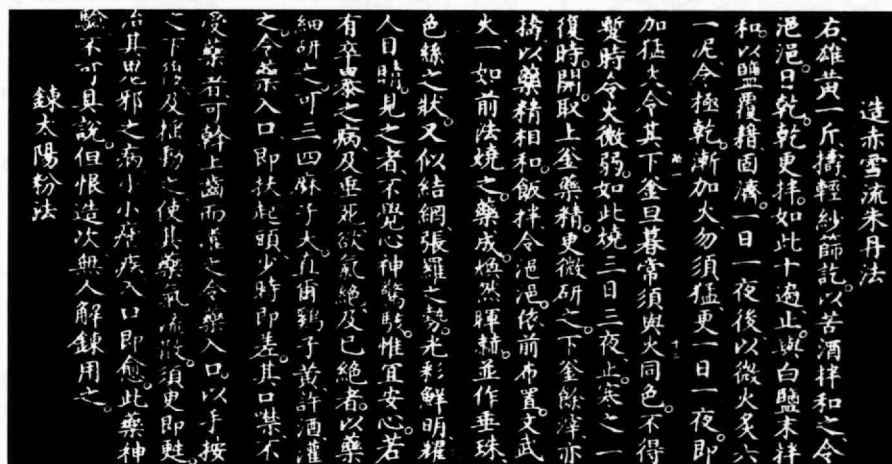 造赤雪流朱丹法
右雄黄一斤擣輕紗篩訖。以苦酒拌和之令
浥浥。日乾。乾更拌。如此十遍止。與白鹽末拌
和。以鹽覆藉固濟。一日一夜後以微火炙六
一泥。令極乾。漸加火勿須猛。更一日一夜。即
加猛火令其下釜旦暮常須與火同色。不得
暫時令火微弱。如此燒三日三夜止。寒之一
復時。開取上釜藥精更微研之。下釜餘滓亦
擣。以藥精相和。飯拌令浥浥。依前布置。文武
火一如前法燒之。藥成煥然暉赫。並作垂珠
色絲之狀。又似結網張羅之勢。光彩鮮明耀
人目睛。見之者不覺心神驚駭。惟宜安心。若
有卒暴之病及垂死欲氣絕及已絕者。以藥
細研之。可三四麻子大。直爾鷄子黄許酒灌
之。令藥入口。即扶起頭。少時即差。其口噤不
受藥者。可幹上齒而灌之令藥入口。以手按
之下後。及搖動之。使其藥氣流散。須臾即甦。
治其鬼邪之病。小小瘧疾入口即愈。此藥神
驗不可具說。但恨造次無人解鍊用之。
鍊太陽粉法